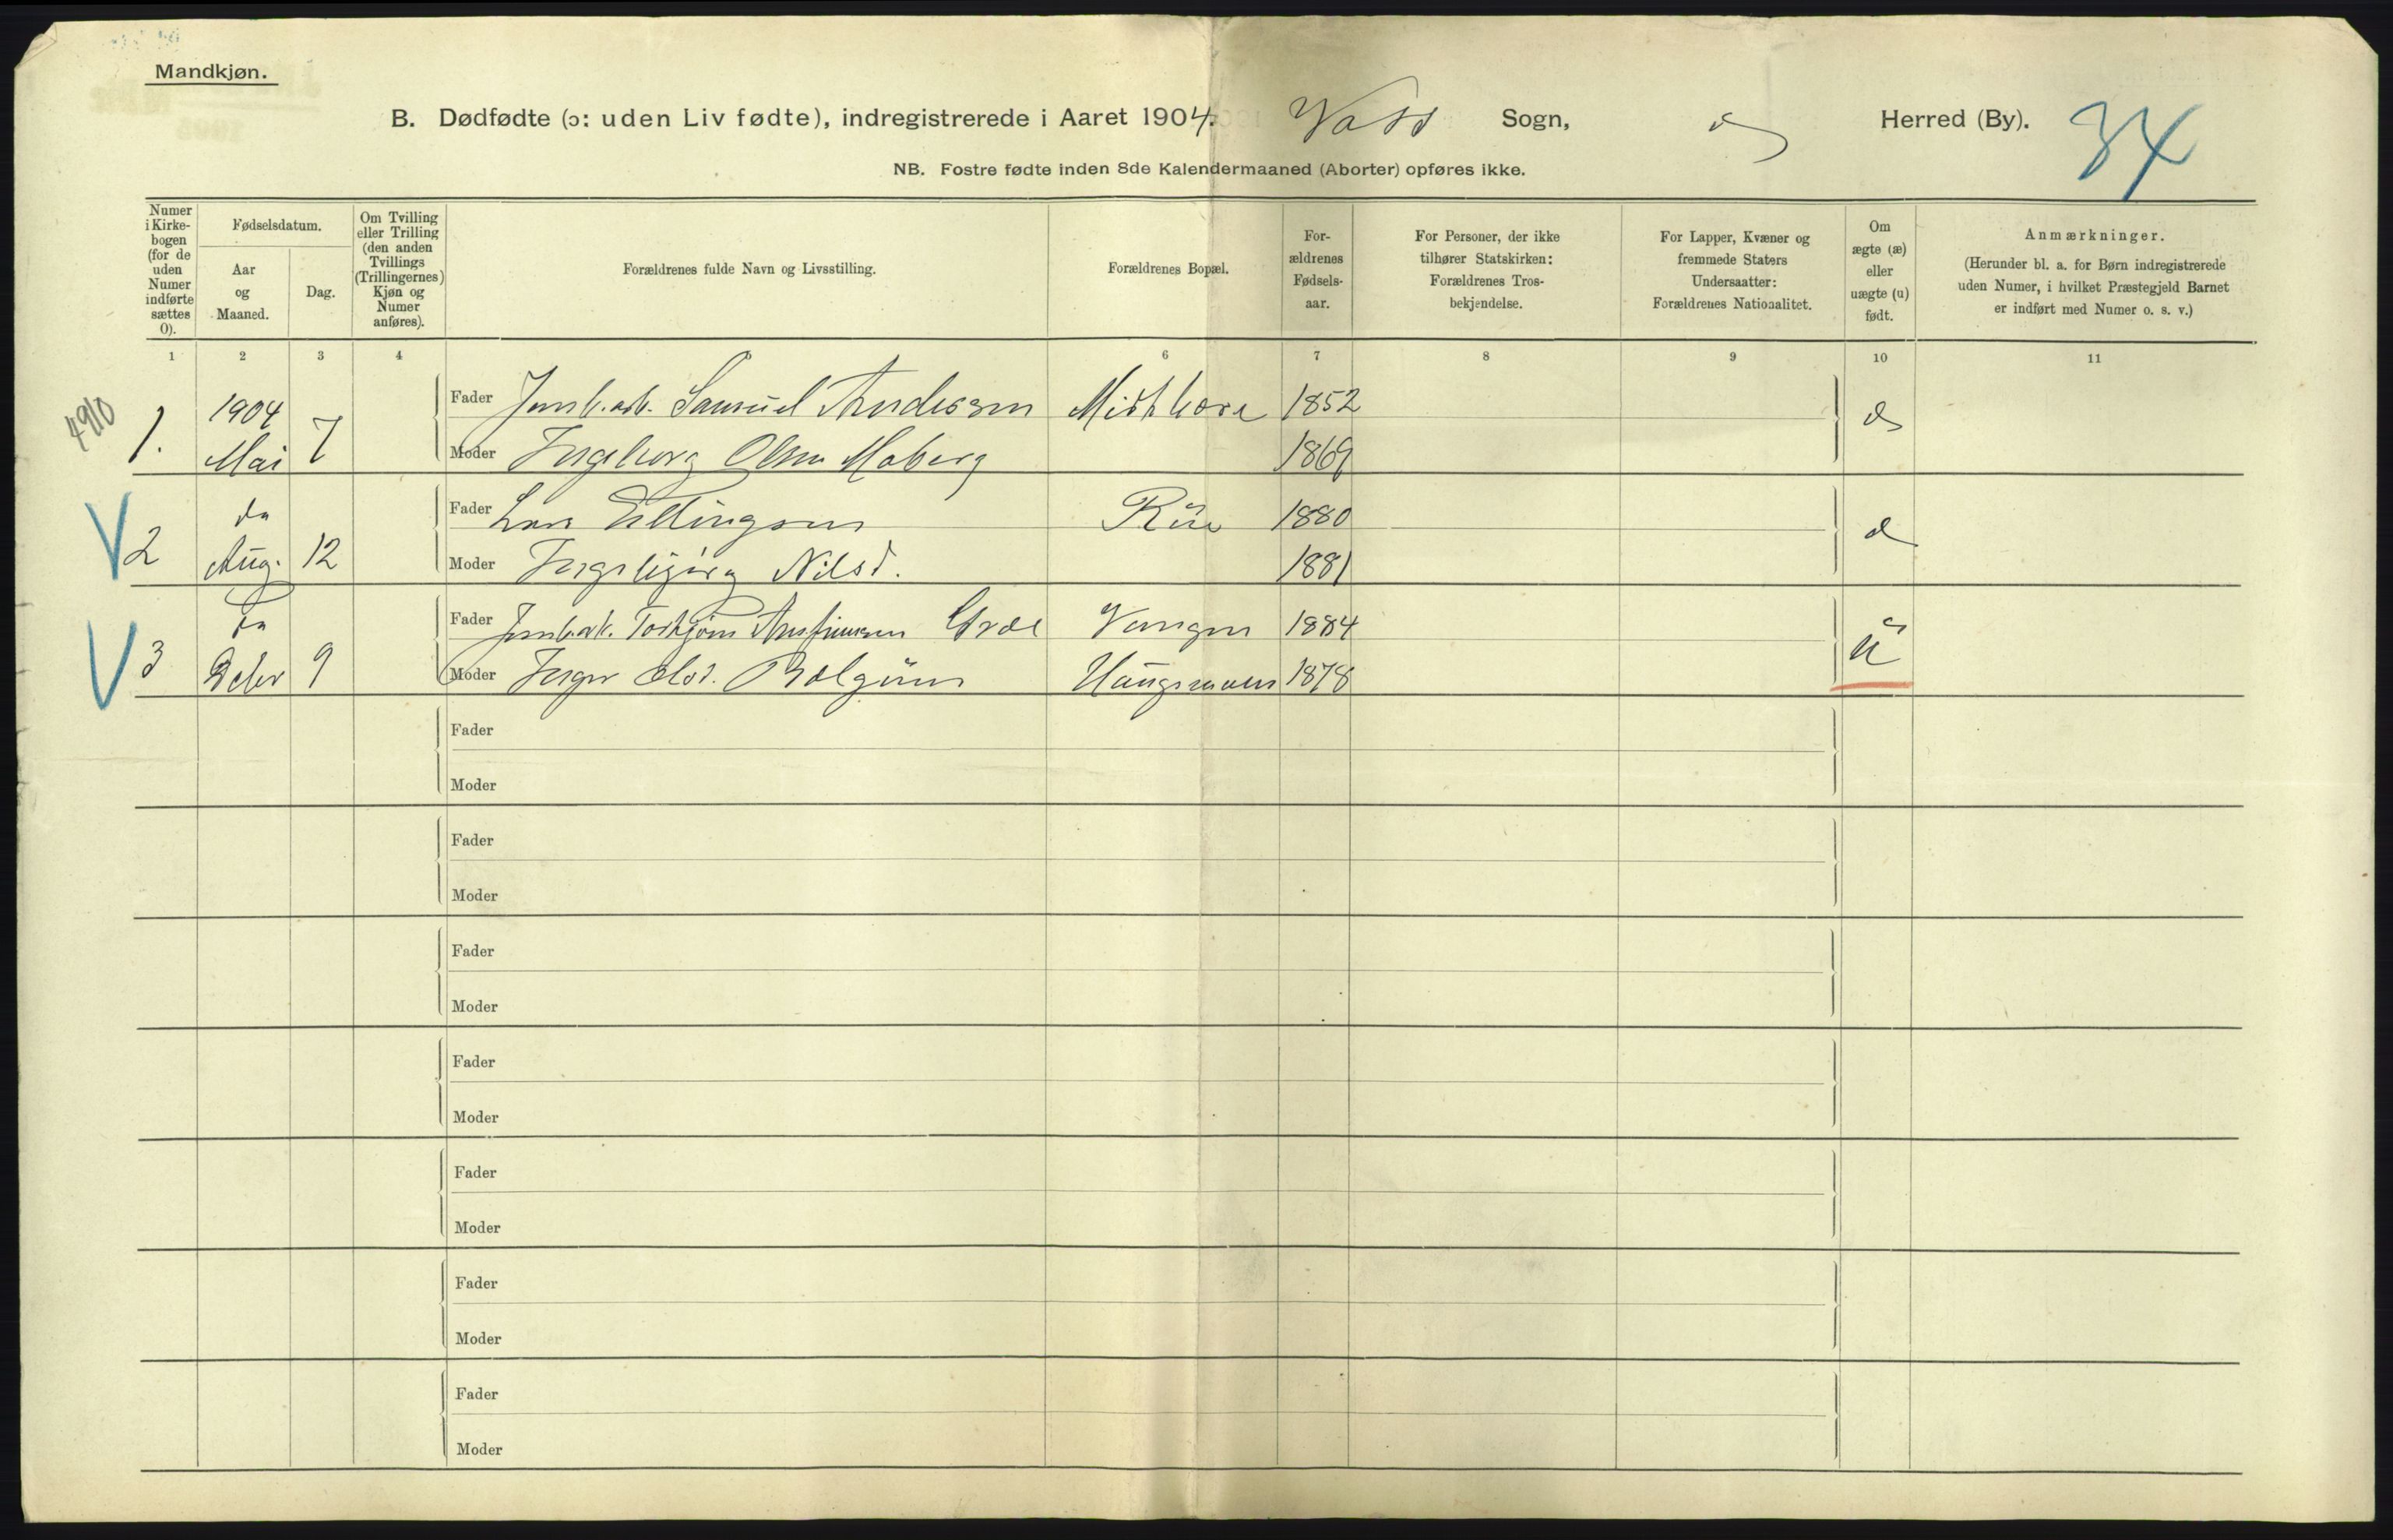 Mandkjøn.
B. Dødfødte (ɔ: uden Liv fødte), indregistrerede i Aaret 1904. Voss Sogn, Herred (By). 34
NB. Fostre fødte inden 8de Kalendermaaned (Aborter) opføres ikke.
Numer i Kirkebogen (for de uden Numer indførte sættes 0).
Fødselsdatum.
Aar og Maaned.
Dag.
Om Tvilling eller Trilling (den anden Tvillings (Trillingernes) Kjøn og Numer anføres).
Forældrenes fulde Navn og Livsstilling.
Forældrenes Bopæl.
Forældrenes Fødselsaar.
For Personer, der ikke tilhører Statskirken: Forældrenes Trosbekjendelse.
For Lapper, Kvæner og fremmede Staters Undersaatter: Forældrenes Nationalitet.
Om ægte (æ) eller uægte (u) født.
Anmærkninger.
(Herunder bl. a. for Børn indregistrerede uden Numer, i hvilket Præstegjeld Barnet er indført med Numer o. s. v.)
1 2 3 4 6 7 8 9 10 11
4910
1. 1904 Mai 7 Fader Jernb.arb. Samuel Anderssen 1852 æ
Moder Ingeborg Olsen Moberg 1869
V 2 do Aug. 12 Fader Lars Ellingsen 1880 æ
Moder Ingebjørg Nilsd. 1881
V 3 do Debr 9 Fader Jernb.arb. Torbjørn Arnfinnsen Vangen 1884 u
Moder Inger Olsd. 1878
Fader
Moder
Fader
Moder
Fader
Moder
Fader
Moder
Fader
Moder
Fader
Moder
Fader
Moder